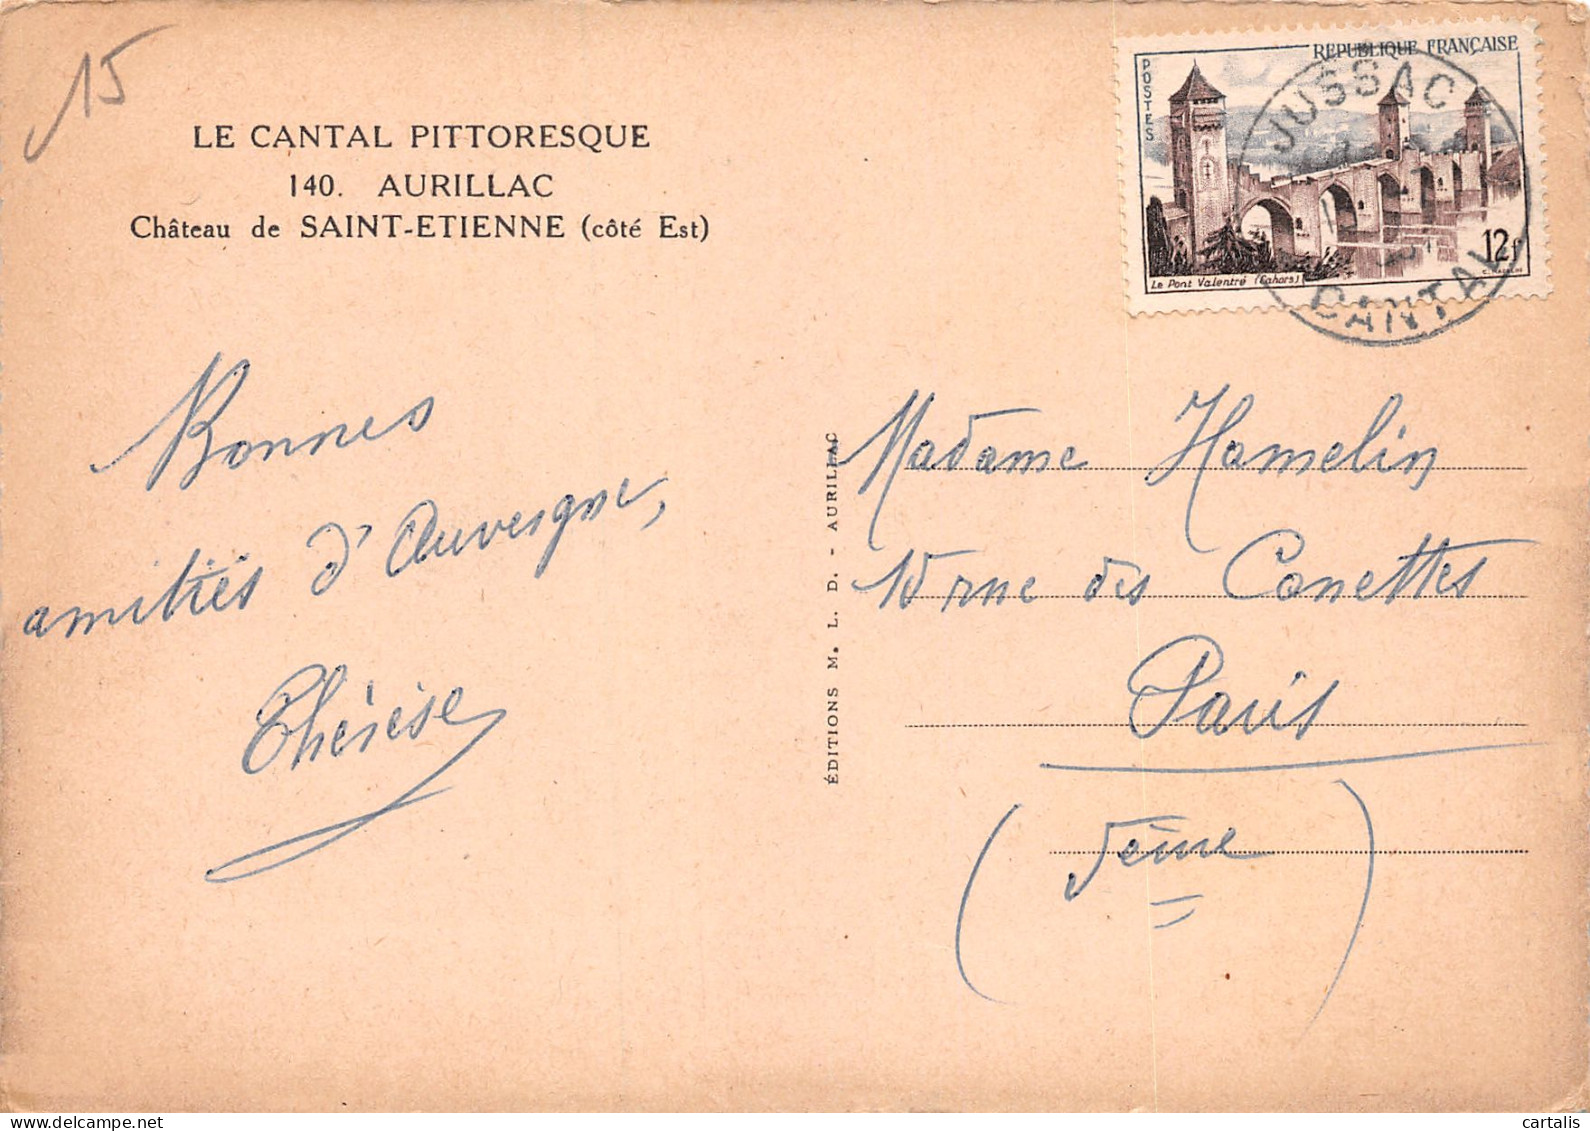 15
LE CANTAL PITTORESQUE
140. AURILLAC
Château de SAINT-ETIENNE (côté Est)
RÉPUBLIQUE FRANÇAISE
POSTES
12f
Le Pont Valentré (Cahors)
JUSSAC
CANTAL
Bonnes
amitiés d'Auvergne,
Thérèse
ÉDITIONS M. L. D. - AURILLAC
Madame Hamelin
rue des Canettes
Paris
(ème)
delcampe.net
cartalis